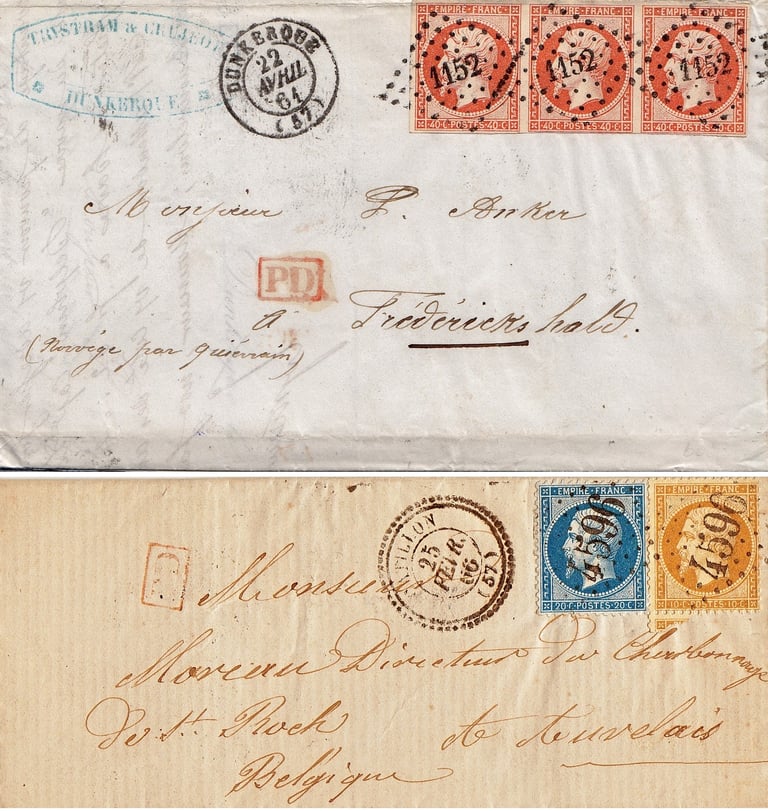 TRYSTRAM &
DUNKERQUE
DUNKERQUE
22
AVRIL
61
(57)
EMPIRE·FRANC· EMPIRE·FRANC· EMPIRE·FRANC·
1152 1152 1152
40·C·POSTES·40·C· 40·C·POSTES·40·C· 40·C·POSTES·40·C·
Monsieur P. Anker
PD
à Frédérickshald.
(Norvége par Quiévrain)
25
FEVR.
66
(57)
EMPIRE·FRANC· EMPIRE·FRANC·
4596 4596
20·C·POSTES·20·C· 10·C·POSTES·10·C·
Monsieur
Moreau Directeur du Charbonnage
de St. Roch à Auvelais
Belgique